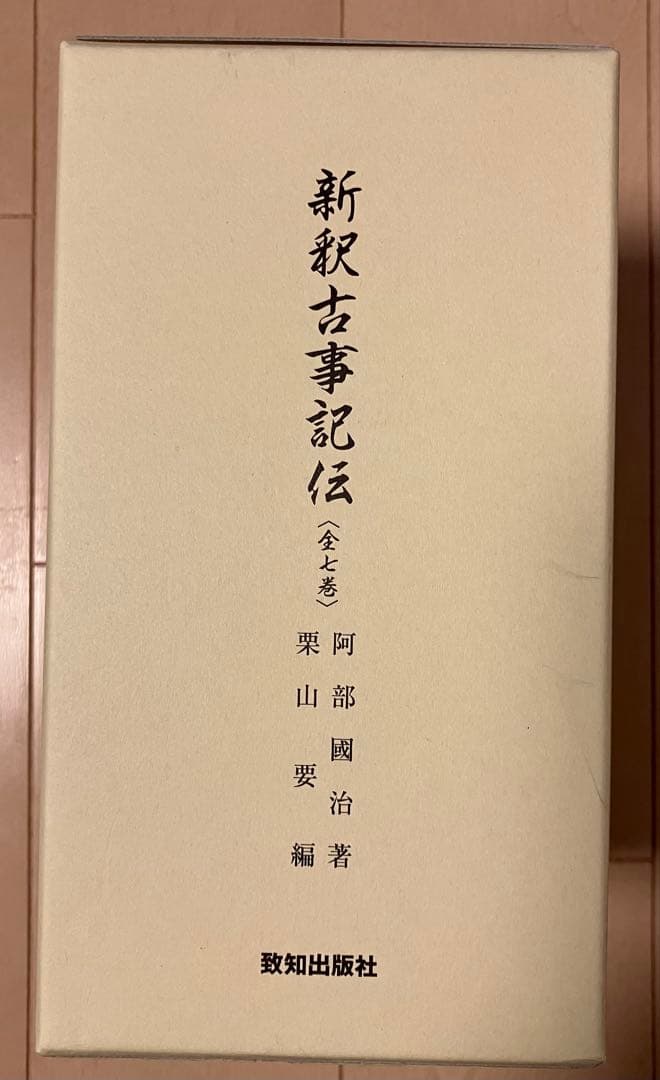 新釈古事記伝〈全七巻〉
阿部國治 著
栗山 要 編
致知出版社